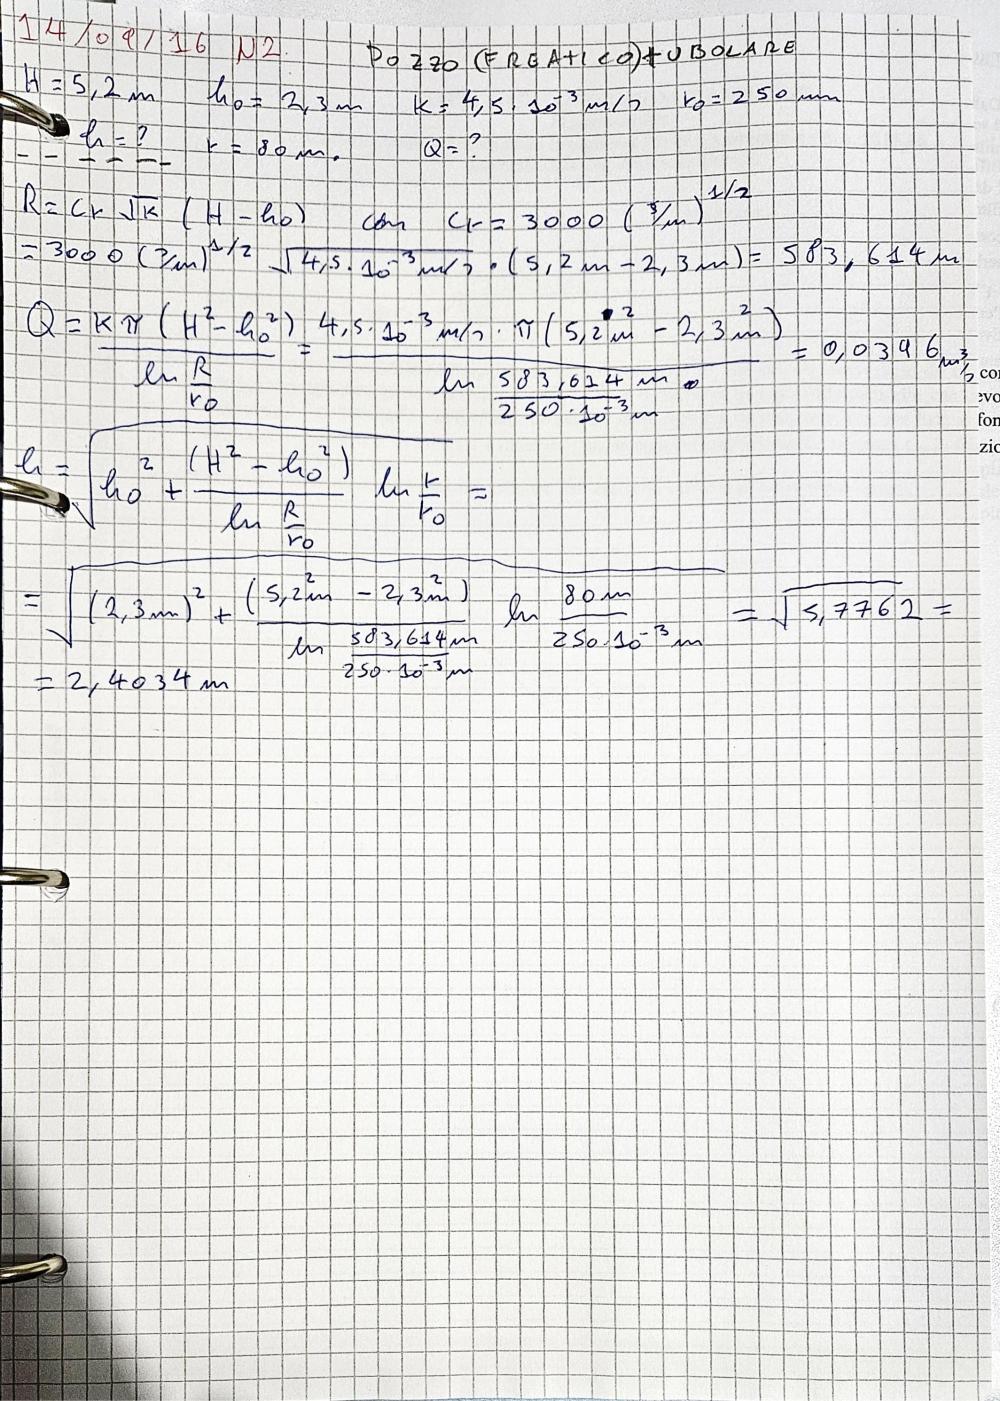 14/09/16 N2. POZZO (FREATICO) TUBOLARE
H = 5,2 m h0 = 2,3 m K = 4,5 · 10^-3 m/s r0 = 250 mm
h = ? r = 80 m. Q = ?
R = Cr √K (H - h0) con Cr = 3000 (s/m)^1/2
= 3000 (s/m)^1/2 √4,5·10^-3 m/s · (5,2 m - 2,3 m) = 583,614 m
Q = Kπ (H² - h0²) / ln R/r0 = 4,5·10^-3 m/s · π (5,2² m - 2,3² m) / ln 583,614 m / 250·10^-3 m = 0,0396 m³/s
h = √ h0² + (H² - h0²) / ln R/r0 ln r/r0 =
= √ (2,3 m)² + (5,2² m - 2,3² m) / ln 583,614 m / 250·10^-3 m ln 80 m / 250·10^-3 m = √5,7762 =
= 2,4034 m
con
evo
fon
zio